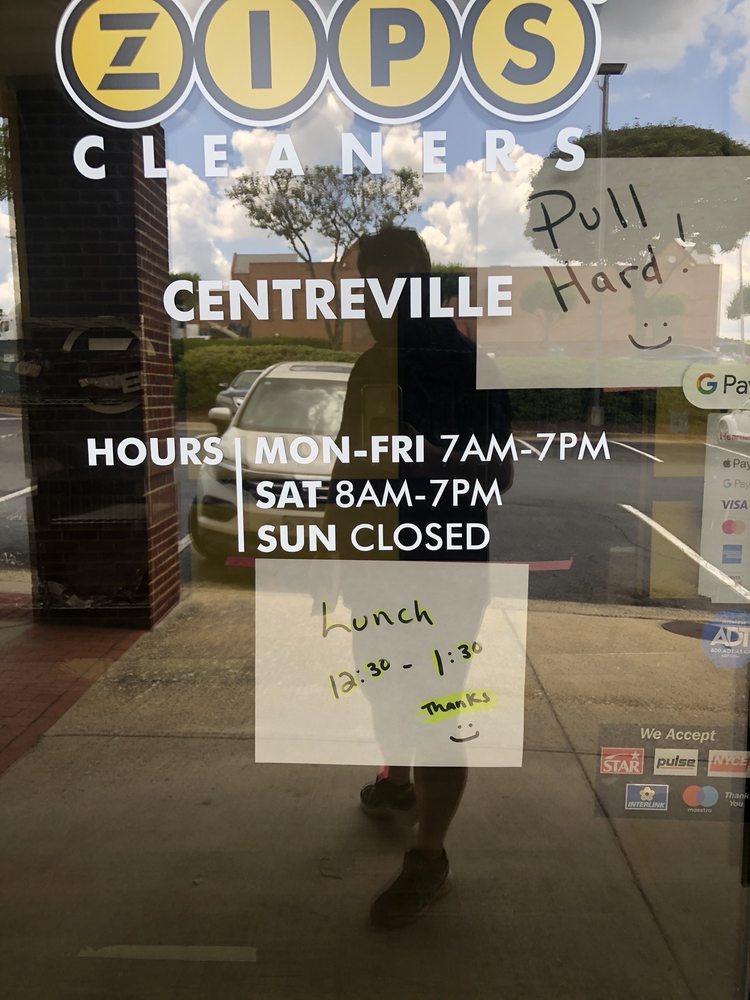 ZIPS
CLEANERS
Pull
Hard!
CENTREVILLE
G Pay
HOURS MON-FRI 7AM-7PM
SAT 8AM-7PM
SUN CLOSED
Pay
G Pay
VISA
Lunch
12:30 - 1:30
Thanks
ADT
We Accept
STAR pulse NYCE
INTERLINK maestro
Thank
You